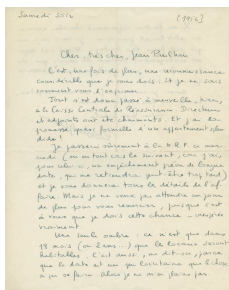 Samedi soir
[1956]
Cher, très cher, Jean Paulhan
C'est, une fois de plus, une reconnaissance
considérable que je vous dois. Et je ne sais
comment vous l'exprimer.
Tout s'est donc passé à merveille,
à la Caisse Centrale de Réassurance. Directeur
et adjoints ont été charmants. Et j'ai la
promesse formelle d'un appartement
Je passerai sûrement à la N.R.F. ce
mercredi (ou en tout cas le suivant, car j'ai,
pour celui-ci, un empêchement pris de longue
date, qui me retiendra peut-être trop tard)
et je vous donnerai tous les détails de l'af-
faire. Mais je ne veux pas attendre un jour
de plus pour vous remercier, puisque c'est
à vous que je dois cette chance
vraiment
Une seule ombre : ce n'est que dans
18 mois (ou 2 ans...) que les locaux seront
habitables. C'est aussi, me dit-on, parce
que la date est un peu lointaine que la chose
a pu se faire. Alors je ne m'en plains pas.